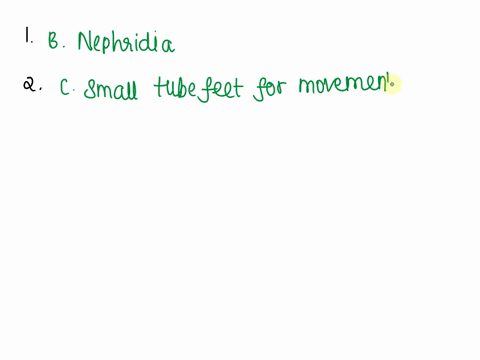 1. B. Nephridia
2. C. Small tube feet for movement